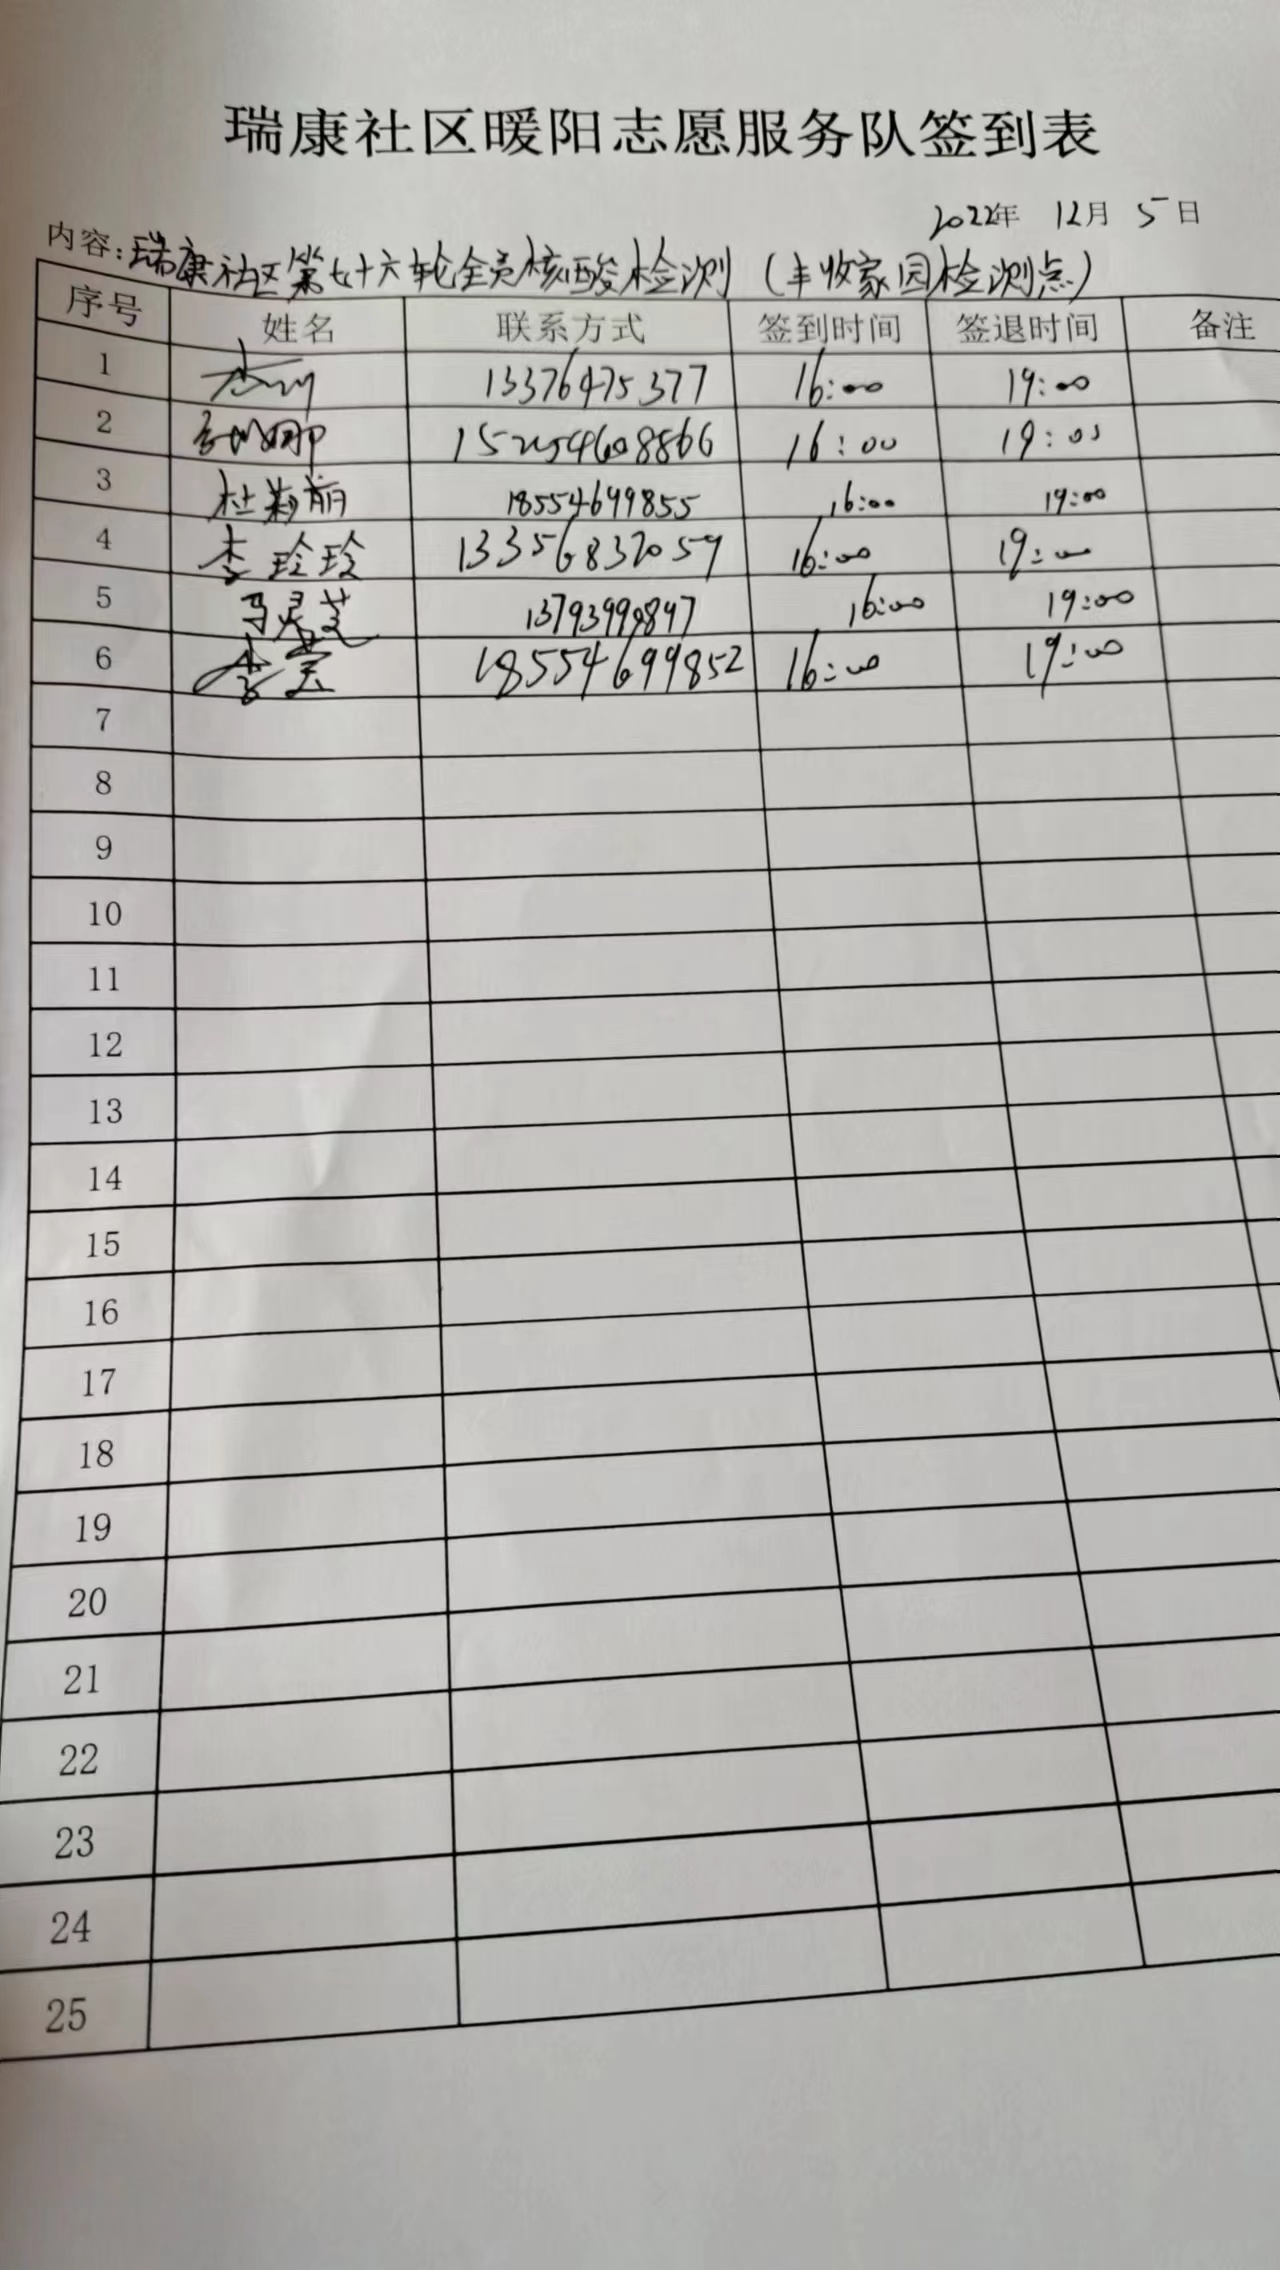 瑞康社区暖阳志愿服务队签到表
2022年 12月 5日
内容:瑞康社区第七十六轮全员核酸检测(丰收家园检测点)
序号 姓名 联系方式 签到时间 签退时间 备注
1 13376475377 16:00 19:00
2 16:00 19:00
3 18554699855 16:00 19:00
4 李玲玲 13356837059 16:00 19:00
5 马灵芝 16:00 19:00
6 18554699852 16:00 19:00
7
8
9
10
11
12
13
14
15
16
17
18
19
20
21
22
23
24
25